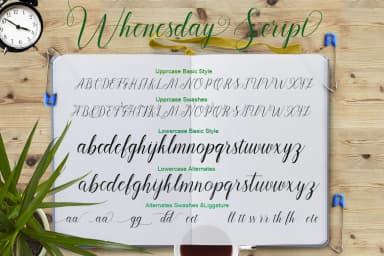 Whenesday Script
Upprcase Basic Style
ABCDEFGHIJKLMNOPQRSTUVWXYZ
Upprcase Swashes
ABCDEFGHIJKLMNOPQRSTUVWXYZ
Lowercase Basic Style
abcdefghyklmnopqrstuvwxyz
Lowercase Alternates
abcdefghyklmnopqrstuvwxyz
Alternates Swashes &Liggature
aa aa gg dd et ll tt ss rr th fh etc